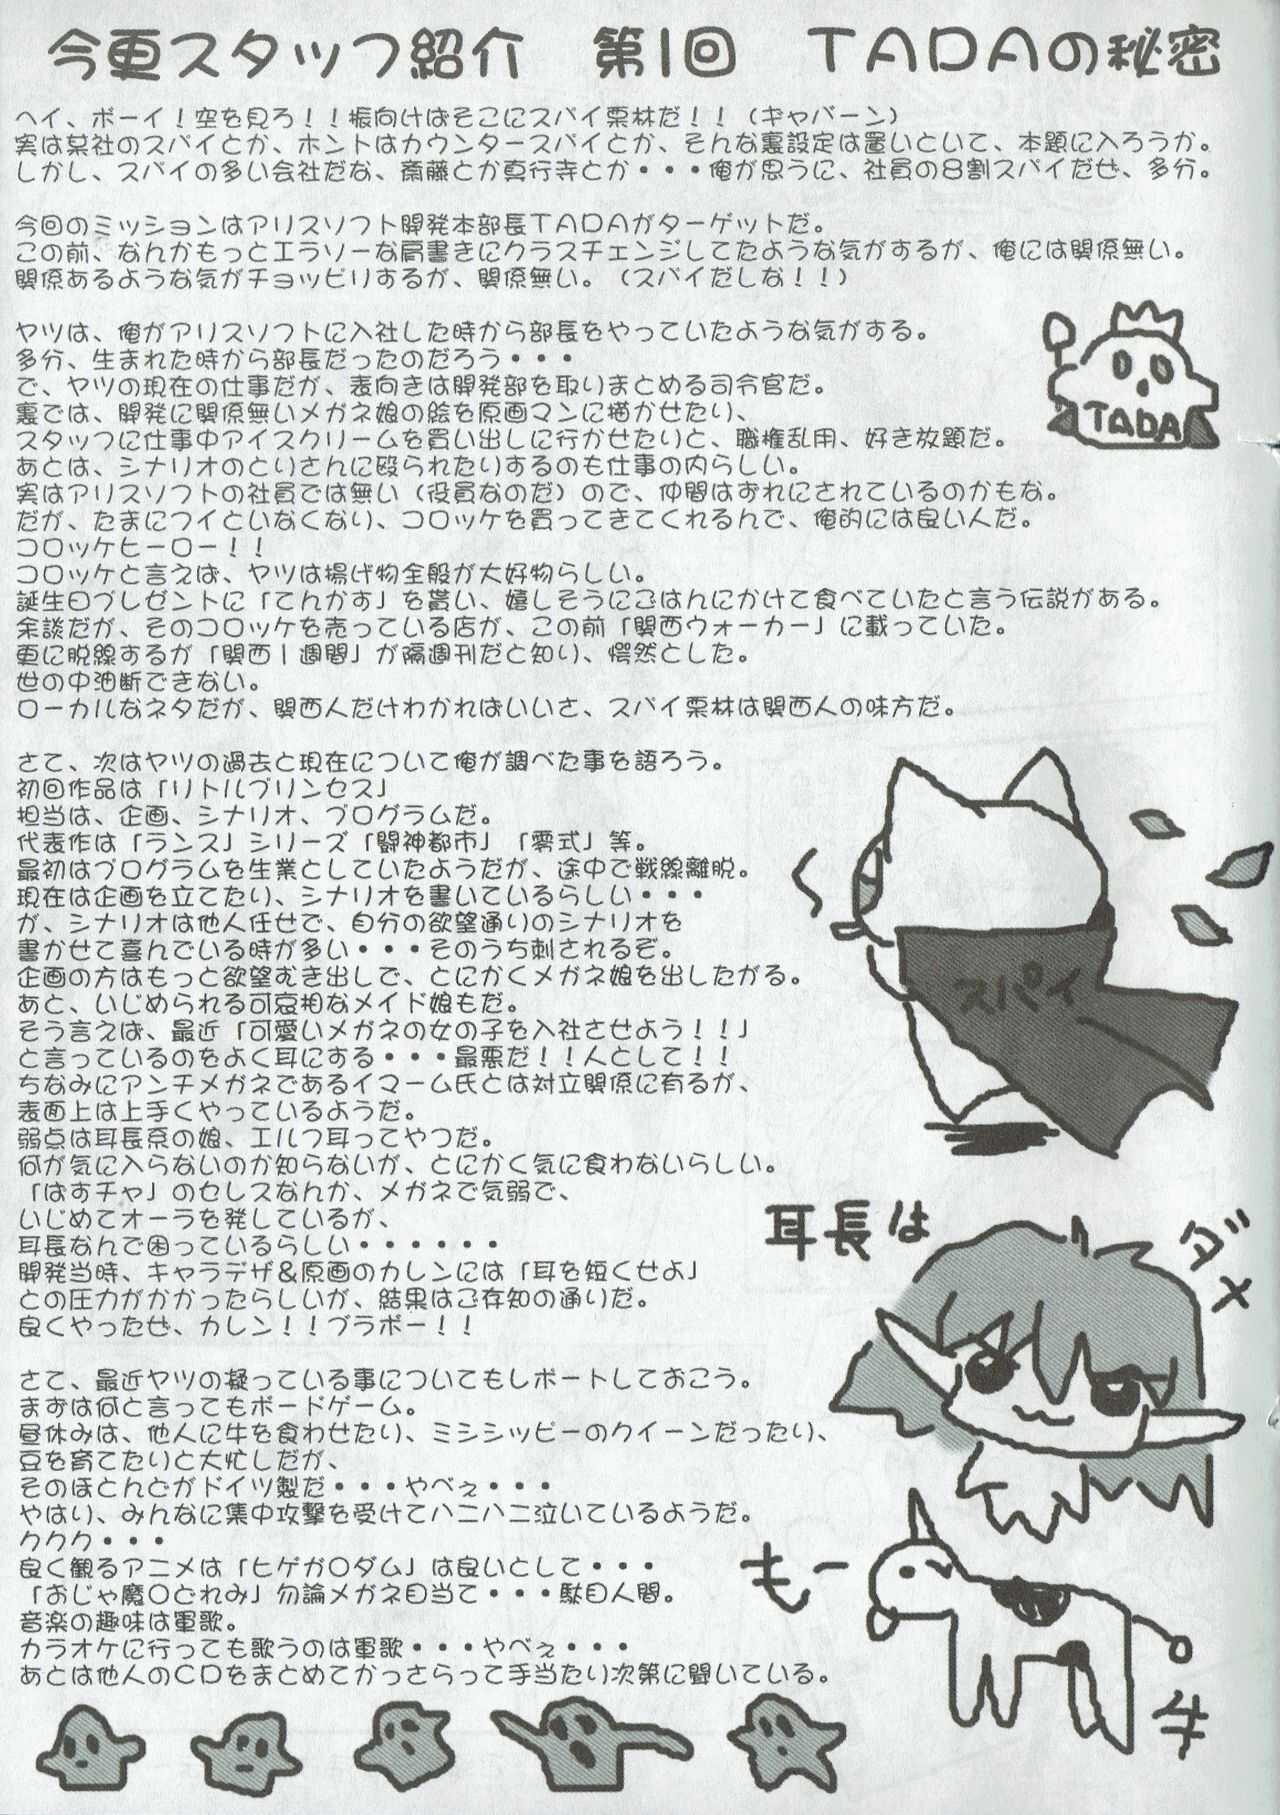 今更スタッフ紹介　第1回　TADAの秘密
ヘイ、ボーイ！空を見ろ！！振向けばそこにスパイ栗林だ！！（ギャバーン）
実は某社のスパイとか、ホントはカウンタースパイとか、そんな裏設定は置いといて、本題に入ろうか。
しかし、スパイの多い会社だな、斎藤とか真行寺とか・・・俺が思うに、社員の8割スパイだぜ、多分。
今回のミッションはアリスソフト開発本部長TADAがターゲットだ。
この前、なんかもっとエラソーな肩書きにクラスチェンジしてたような気がするが、俺には関係無い。
関係あるような気がチョッピリするが、関係無い。（スパイだしな！！）
ヤツは、俺がアリスソフトに入社した時から部長をやっていたような気がする。
多分、生まれた時から部長だったのだろう・・・
で、ヤツの現在の仕事だが、表向きは開発部を取りまとめる司令官だ。
裏では、開発に関係無いメガネ娘の絵を原画マンに描かせたり、
スタッフに仕事中アイスクリームを買い出しに行かせたりと、職権乱用、好き放題だ。
あとは、シナリオのとりさんに殴られたりするのも仕事の内らしい。
実はアリスソフトの社員では無い（役員なのだ）ので、仲間はずれにされているのかもな。
だが、たまにフイといなくなり、コロッケを買ってきてくれるんで、俺的には良い人だ。
コロッケヒーロー！！
コロッケと言えば、ヤツは揚げ物全般が大好物らしい。
誕生日プレゼントに「てんかす」を貰い、嬉しそうにごはんにかけて食べていたと言う伝説がある。
余談だが、そのコロッケを売っている店が、この前「関西ウォーカー」に載っていた。
更に脱線するが「関西1週間」が隔週刊だと知り、愕然とした。
世の中油断できない。
ローカルなネタだが、関西人だけわかればいいさ、スパイ栗林は関西人の味方だ。
TADA
さて、次はヤツの過去と現在について俺が調べた事を語ろう。
初回作品は「リトルプリンセス」
担当は、企画、シナリオ、プログラムだ。
代表作は「ランス」シリーズ「闘神都市」「零式」等。
最初はプログラムを生業としていたようだが、途中で戦線離脱。
現在は企画を立てたり、シナリオを書いているらしい・・・
が、シナリオは他人任せで、自分の欲望通りのシナリオを
書かせて喜んでいる時が多い・・・そのうち刺されるぞ。
企画の方はもっと欲望むき出しで、とにかくメガネ娘を出したがる。
あと、いじめられる可哀相なメイド娘もだ。
そう言えば、最近「可愛いメガネの女の子を入社させよう！！」
と言っているのをよく耳にする・・・最悪だ！！人として！！
ちなみにアンチメガネであるイマーム氏とは対立関係に有るが、
表面上は上手くやっているようだ。
弱点は耳長系の娘、エルフ耳ってやつだ。
何が気に入らないのか知らないが、とにかく気に食わないらしい。
「ぱすチャ」のセレスなんか、メガネで気弱で、
いじめてオーラを発しているが、
耳長なんで困っているらしい・・・・・・
開発当時、キャラデザ＆原画のカレンには「耳を短くせよ」
との圧力がかかったらしいが、結果はご存知の通りだ。
良くやったぜ、カレン！！ブラボー！！
スパイ
耳長は
ダメ
さて、最近ヤツの凝っている事についてもレポートしておこう。
まずは何と言ってもボードゲーム。
昼休みは、他人に牛を食わせたり、ミシシッピーのクイーンだったり、
豆を育てたりと大忙しだが、
そのほとんどがドイツ製だ・・・やべぇ・・・
やはり、みんなに集中攻撃を受けてハニハニ泣いているようだ。
ククク・・・
良く観るアニメは「ヒゲガ〇ダム」は良いとして・・・
「おジャ魔〇どれみ」勿論メガネ目当て・・・駄目人間。
音楽の趣味は軍歌。
カラオケに行っても歌うのは軍歌・・・やべぇ・・・
あとは他人のCDをまとめてかっさらって手当たり次第に聞いている。
もー
牛